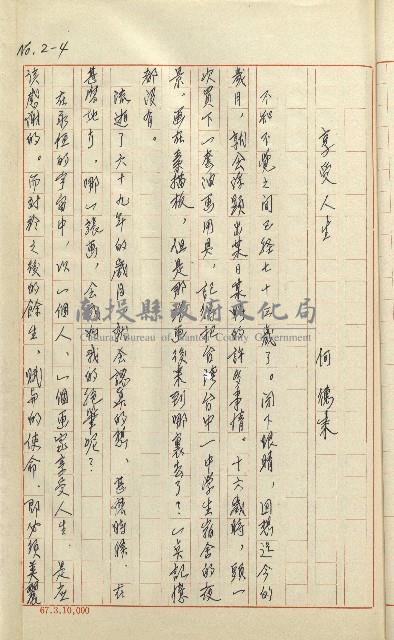 No. 2-4
享受人生
何德來
不知不覺之間已經七十三歲了。閉下眼睛，回想迄今的
歲月，就會浮顯出某日某時的許多事情。十六歲時，頭一
次買下一套油画用具，記得把台灣台中一中学生宿舍的夜
景，画在素描板，但是那張画後來到哪裏去了？一点記憶
都沒有。
流逝了六十九年的歲月，就会認真的想，甚麼時候，在
甚麼地方，哪一張画，会成為我的絕筆呢？
在永恒的宇宙中，以一個人，一個画家享受人生，是应
该感謝的。而対於之後的餘生，賦与的使命，即必須美麗
南投縣政府文化局
Cultural Bureau of Nantou County Government
67.3.10,000